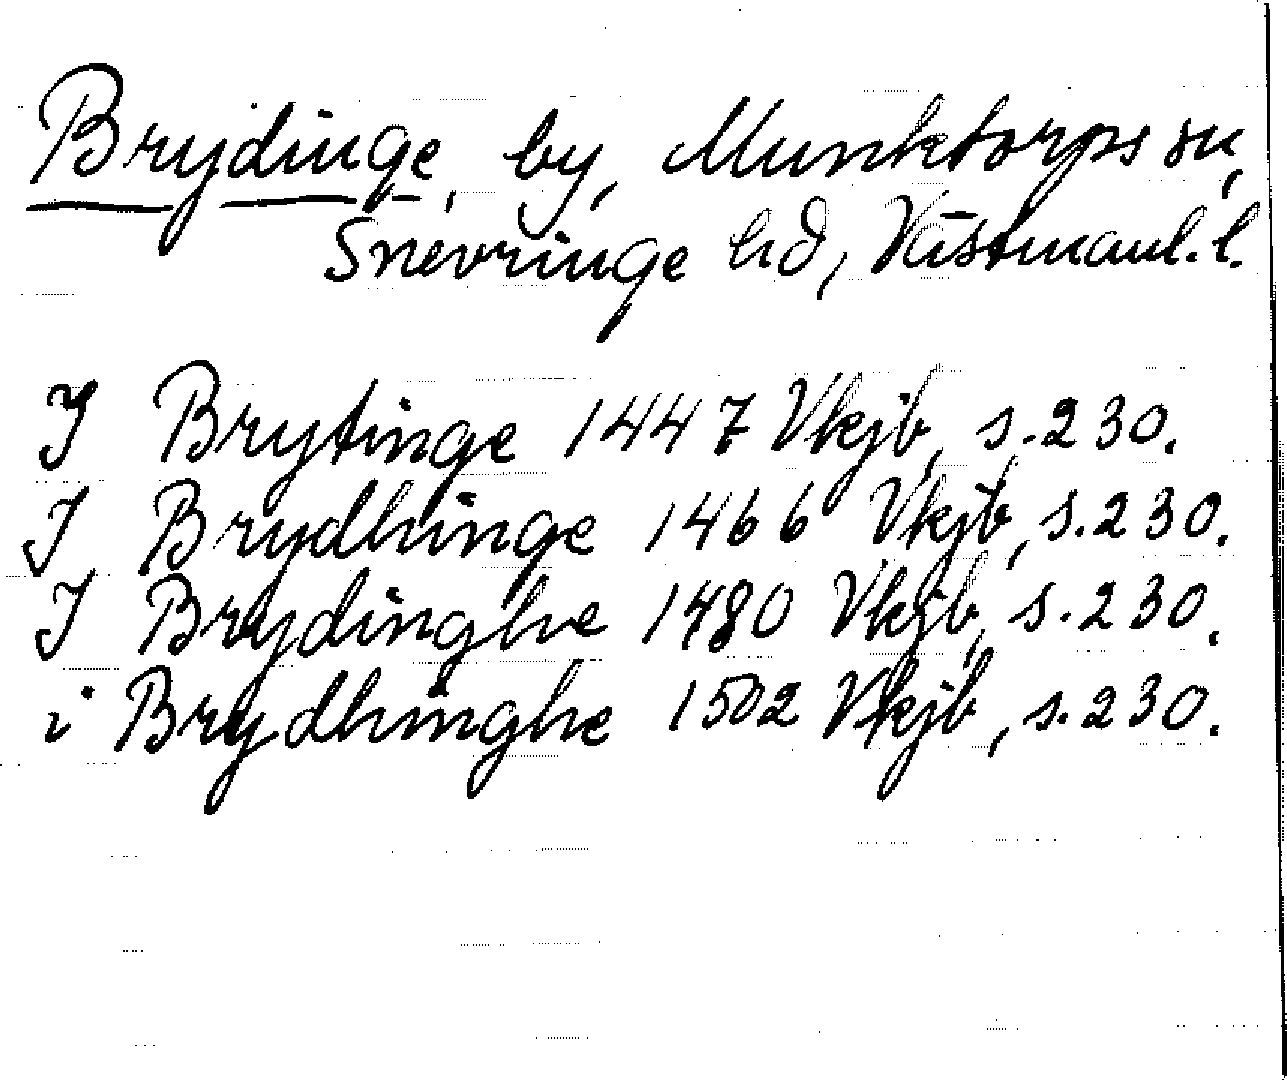 Brydinge, by, Munktorps sn,
Snevringe hd, Västmanl. l.
J Brytinge 1447 Vkjb, s. 230.
J Brydhinge 1466 Vkjb, s. 230.
J Brydinghe 1480 Vkjb, s. 230.
i Brydhinghe 1502 Vkjb, s. 230.